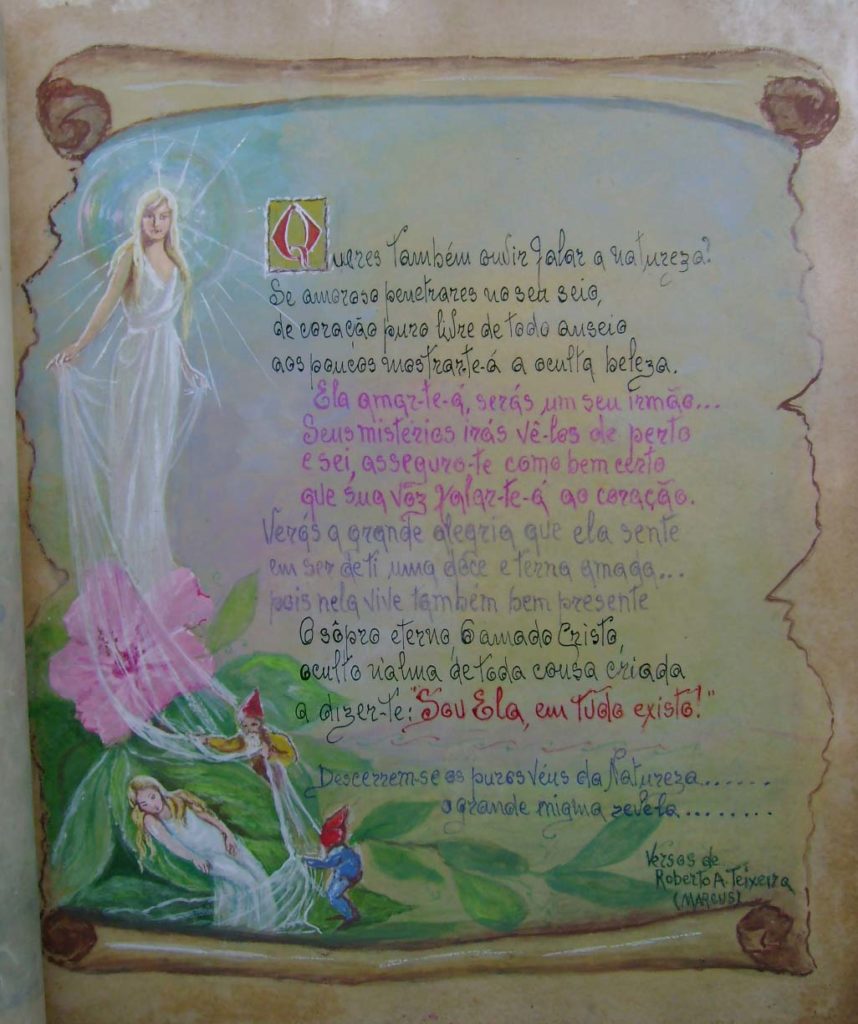 Queres também ouvir falar a natureza?
Se amoroso penetrares no seu seio,
de coração puro livre de todo anseio
aos poucos mostrarte-á a oculta beleza.
Ela amar-te-á, serás um seu irmão...
Seus mistérios irás vê-los de perto
e sei, asseguro-te como bem certo
que sua voz falar-te-á ao coração.
Verás a grande alegria que ela sente
em ser de ti uma doce e terna amada...
pois nela vive também bem presente
O sôpro eterno, O amado Cristo,
oculto n'alma de toda cousa criada
a dizer-te: "Sou Ela, em tudo existo!"
Descerrem-se os puros véus da Natureza.......
o grande enigma revela.........
Versos de
Roberto A. Teixeira
(MARCUS)